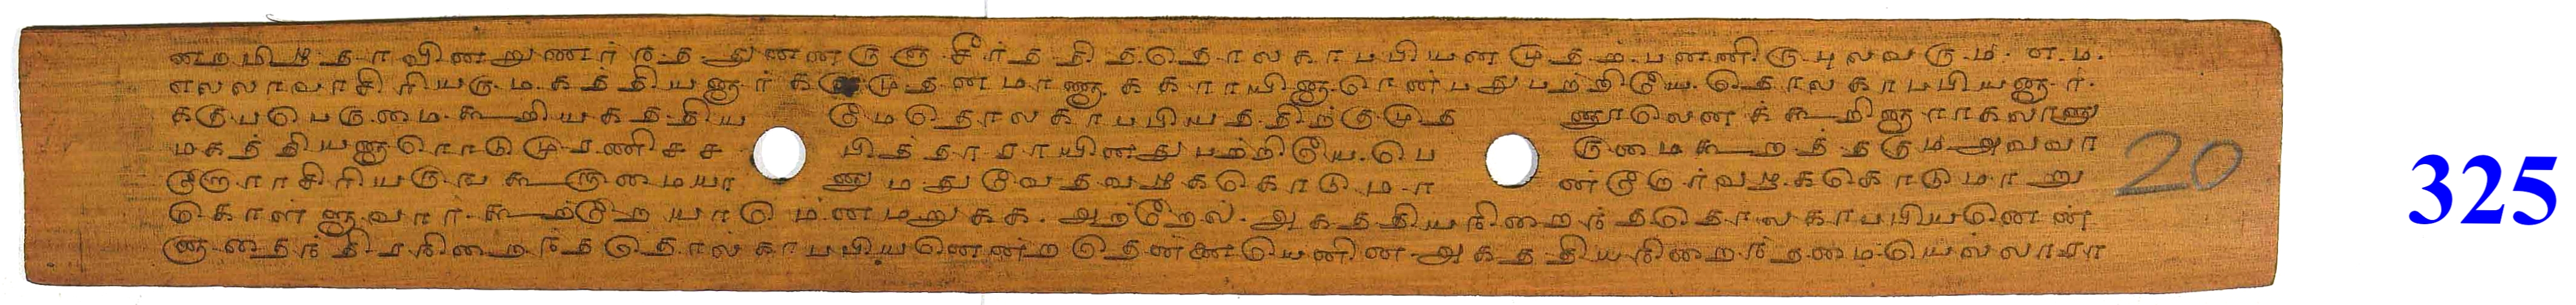 னறமிழ தாவினறுணர்ந்த துனனருளு சீர்த்தி ததொலகாபபியன முதற பனனிரு புலவரும எ.ம.
எலலாவாசிரியரும கத்தியனார் க முதனமாணாககராயினாரென்பது பற்றியே தொலகாபபியனார்
ககுபபெருமை கூறியகத்திய மேதொலகாபபியத்திற்குமுத னூலெனக் கூறினாராகலானு
மகத்தியனாரொடு முரணிசச பித்தாராயினது பற்றியே பெ ருமை கூறத்தகும அவவா
றேராசிரியருங கூறாமையா னுமதுவேதவழககொடு மா ன்றோர்வழககொடுமாறு
கொள்ளுவார் கூற்றே யாமெனமறுகக. அற்றேல். அகத்தியநிறைந்ததொலகாபபியனென்
னாதைந்திரநிறைந்ததொல்காபபியனென்றதென்னையெனின அகத்தியநிறைந்தமையெல்லாரா
20
325